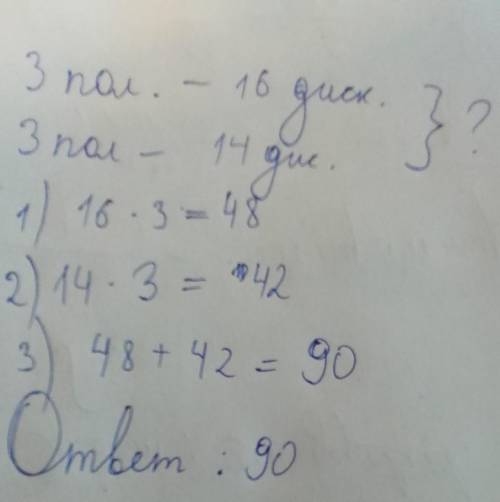 3 пол. - 16 диск. } ?
3 пол - 14 дис.
1) 16 · 3 = 48
2) 14 · 3 = 42
3) 48 + 42 = 90
Ответ : 90